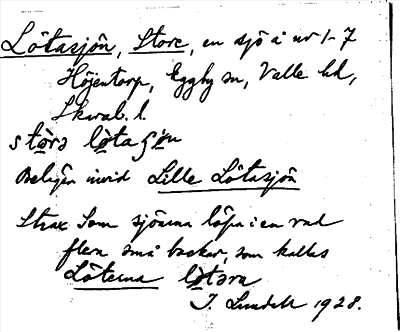 Lötasjön, Store, en sjö å nr 1-7
Höjentorp, Eggby sn, Valle hd,
Skarab. l.
stōrə lø̄taʃøn
Belägen invid Lille Lötasjön
Strax som sjöarna löpa i en rad
flera små backar, som kallas
Löterna lø̄təra
J. Lundahl 1928.